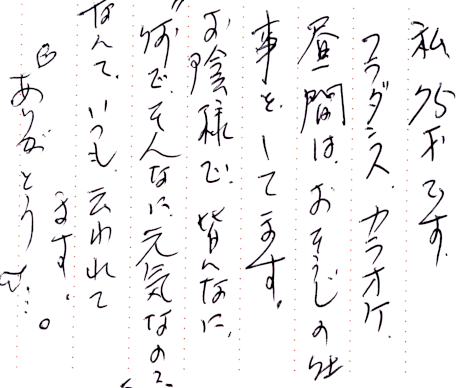 私75才です。
フラダンス、カラオケ、
昼間は、おそうじの仕
事を、してます。
お陰様で、皆んなに、
"何で、そんなに、元気なの?
なんて、いつも、云われて
ます。
ありがとう